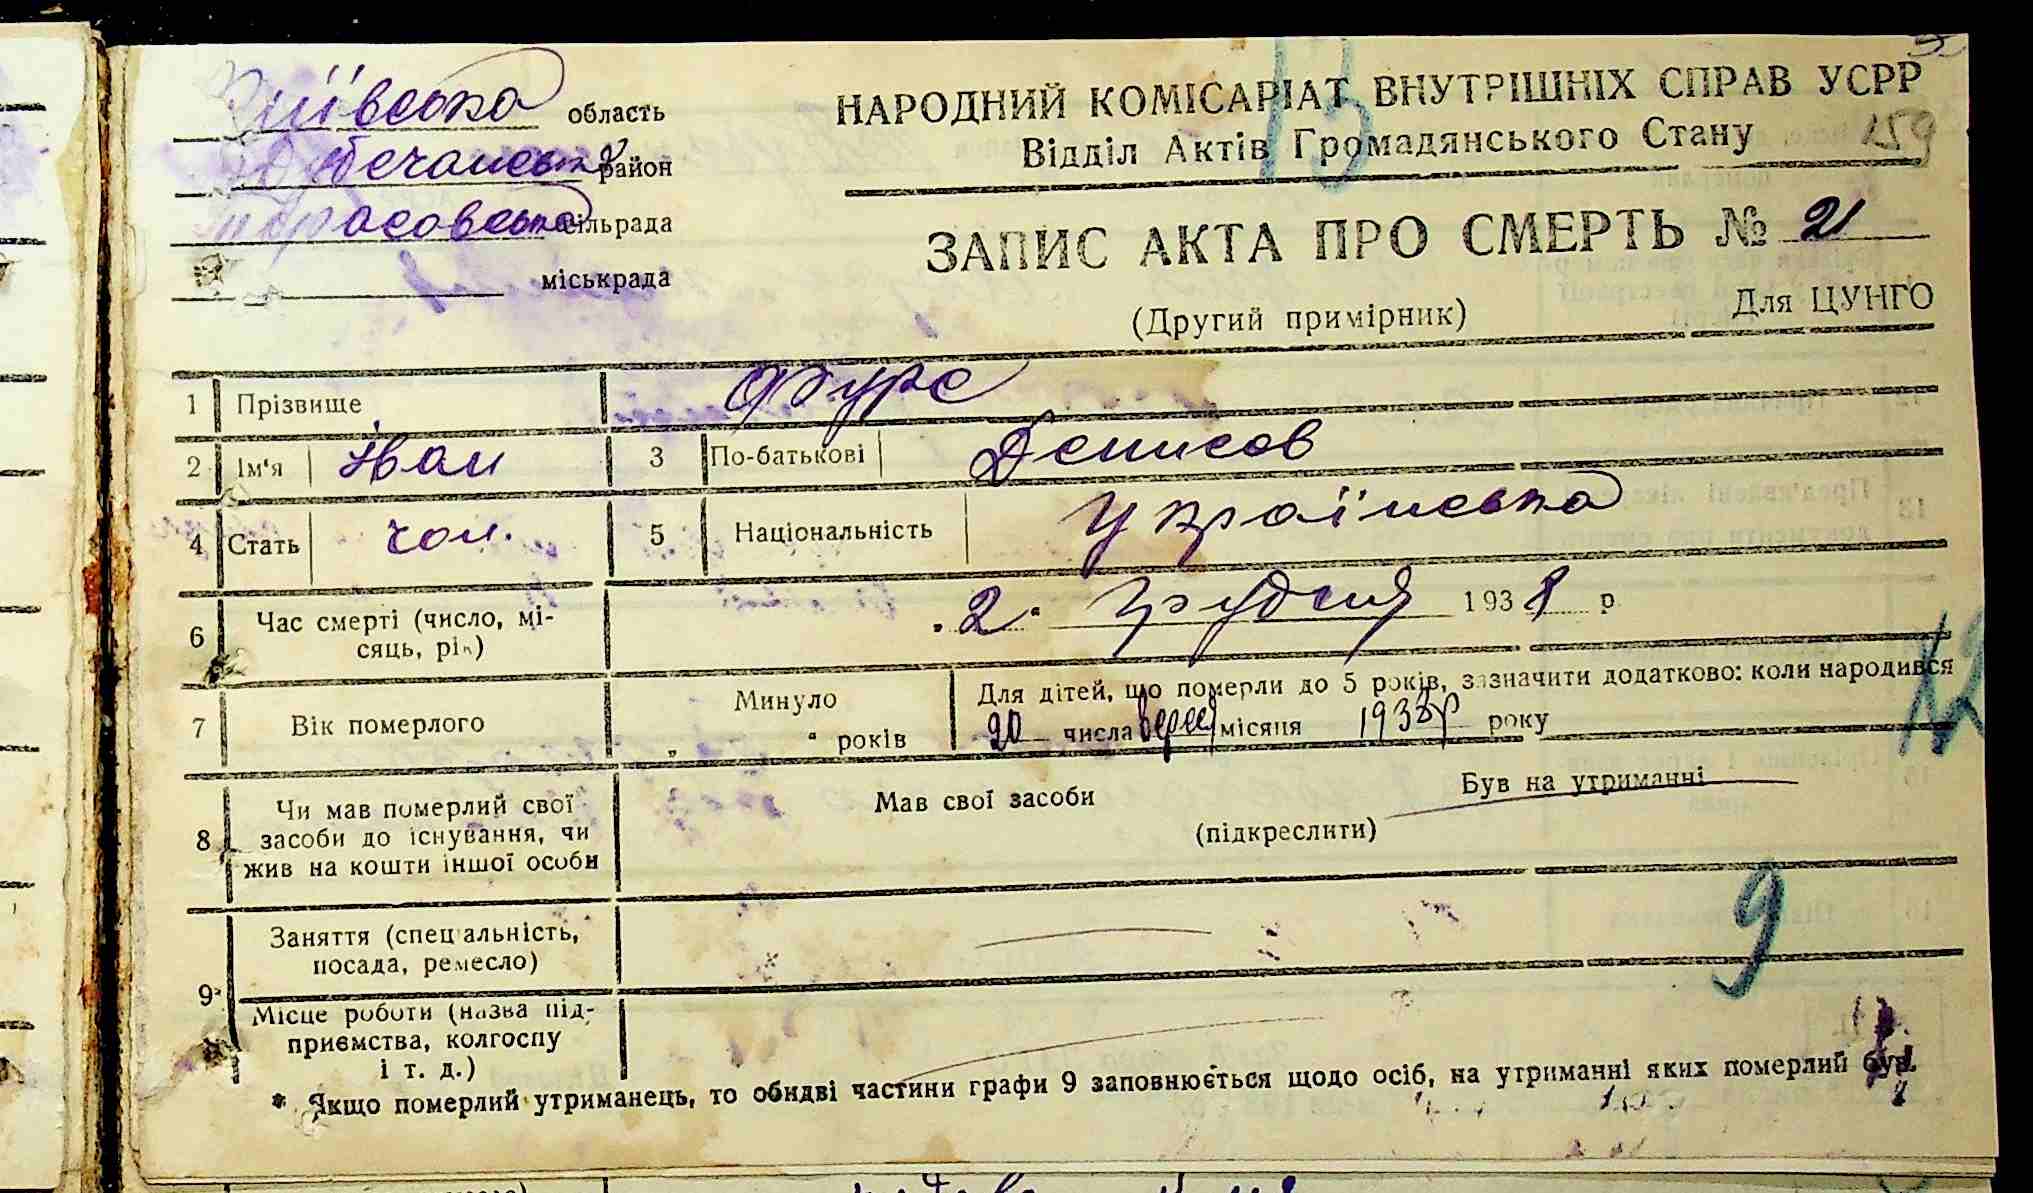 Київська область
район
Тарасовська сільрада
міськрада
13
НАРОДНИЙ КОМІСАРІАТ ВНУТРІШНІХ СПРАВ УСРР
Відділ Актів Громадянського Стану
159
ЗАПИС АКТА ПРО СМЕРТЬ № 21
(Другий примірник) Для ЦУНГО
1 Прізвище Фурс
2 Ім'я Іван 3 По-батькові Денисов
4 Стать чол. 5 Національність Українська
6 Час смерті (число, мі-
сяць, рік)
„2“ грудня 193 р
7 Вік померлого
Минуло
„ “ років
Для дітей, що померли до 5 років, зазначити додатково: коли народився
20 числа місяця року
12
8 Чи мав померлий свої
засоби до існування, чи
жив на кошти іншої особи
Мав свої засоби Був на утриманні
(підкреслити)
9
9* Заняття (спеціальність,
посада, ремесло)
Місце роботи (назва під-
приємства, колгоспу
і т. д.)
* Якщо померлий утриманець, то обидві частини графи 9 заповнюється щодо осіб, на утриманні яких померлий був.